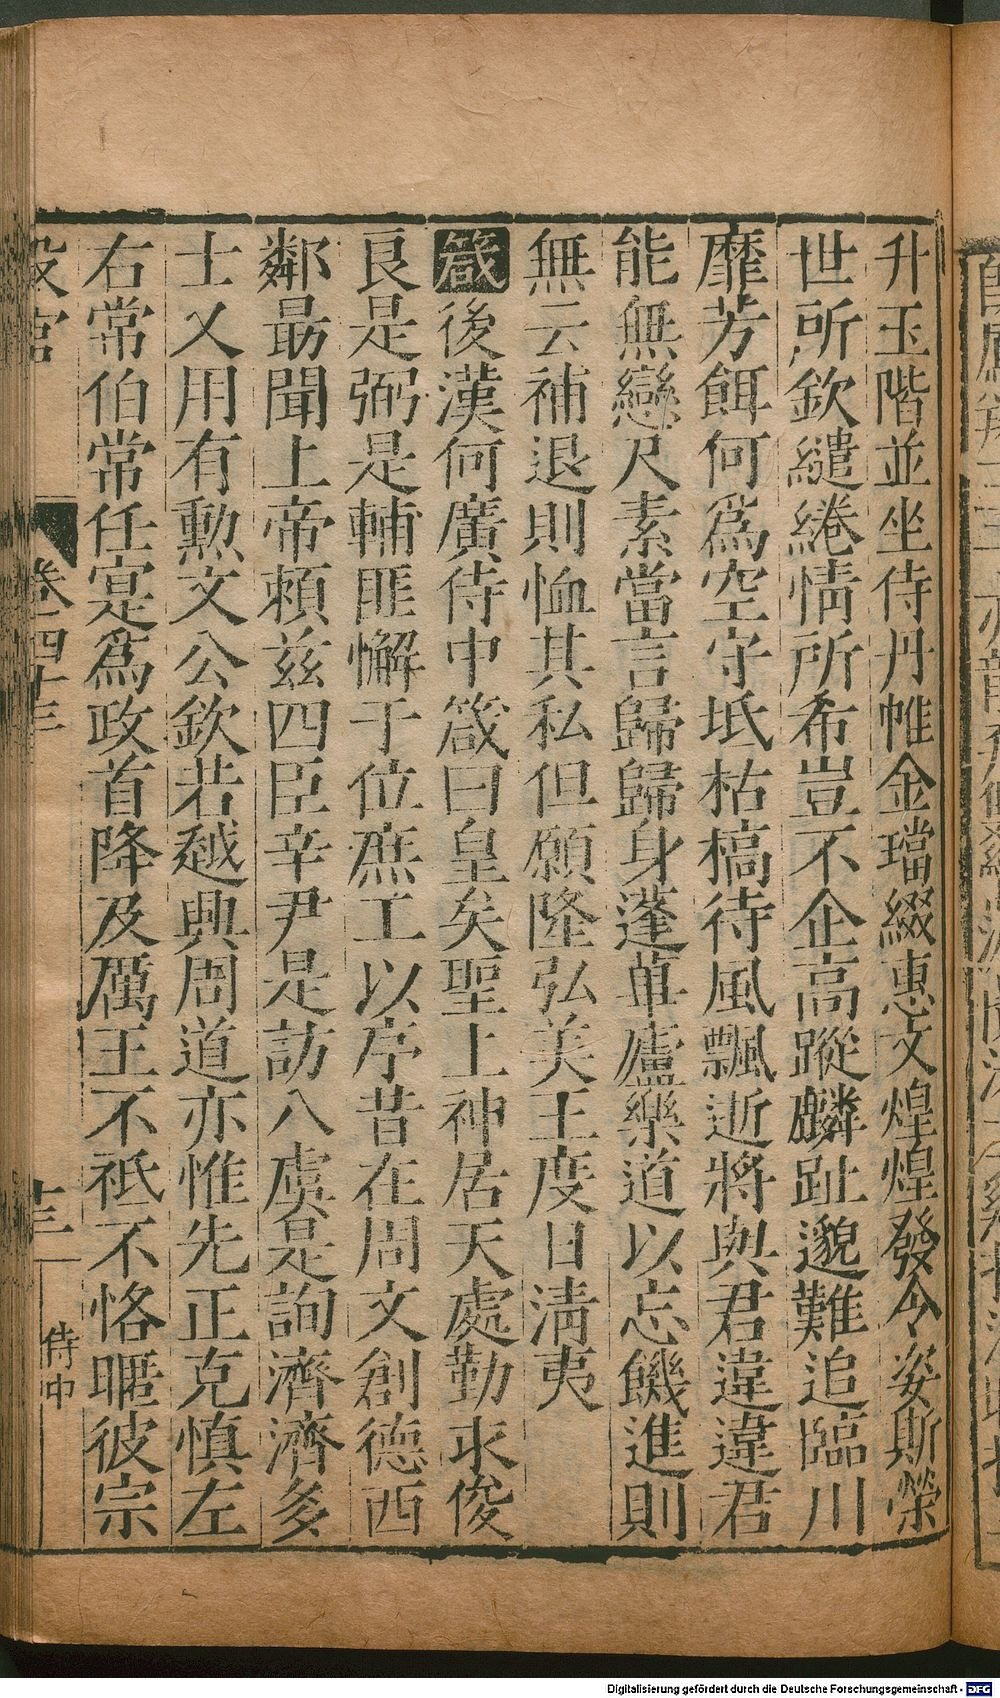 升玉階並坐侍丹帷金璫綴惠文煌煌發令姿斯榮
世所欽繾綣情所希豈不企高蹤麟趾邈難追臨川
靡芳餌何爲空守坻枯槁待風飄逝將與君違違君
能無戀尺素當言歸歸身蓬蓽廬樂道以忘饑進則
無云補退則恤其私但願隆弘美王度日清夷
箴後漢何廣侍中箴曰皇矣聖上神居天處勤求俊
良是弼是輔匪懈于位庶工以序昔在周文創德西
鄰勗聞上帝賴茲四臣辛尹是訪八虞是詢濟濟多
士乂用有勲文公欽若越興周道亦惟先正克慎左
右常伯常任寔爲政首降及厲王不祗不恪暱彼宗
設官
卷四十三
十三
侍中
Digitalisierung gefördert durch die Deutsche Forschungsgemeinschaft - DFG